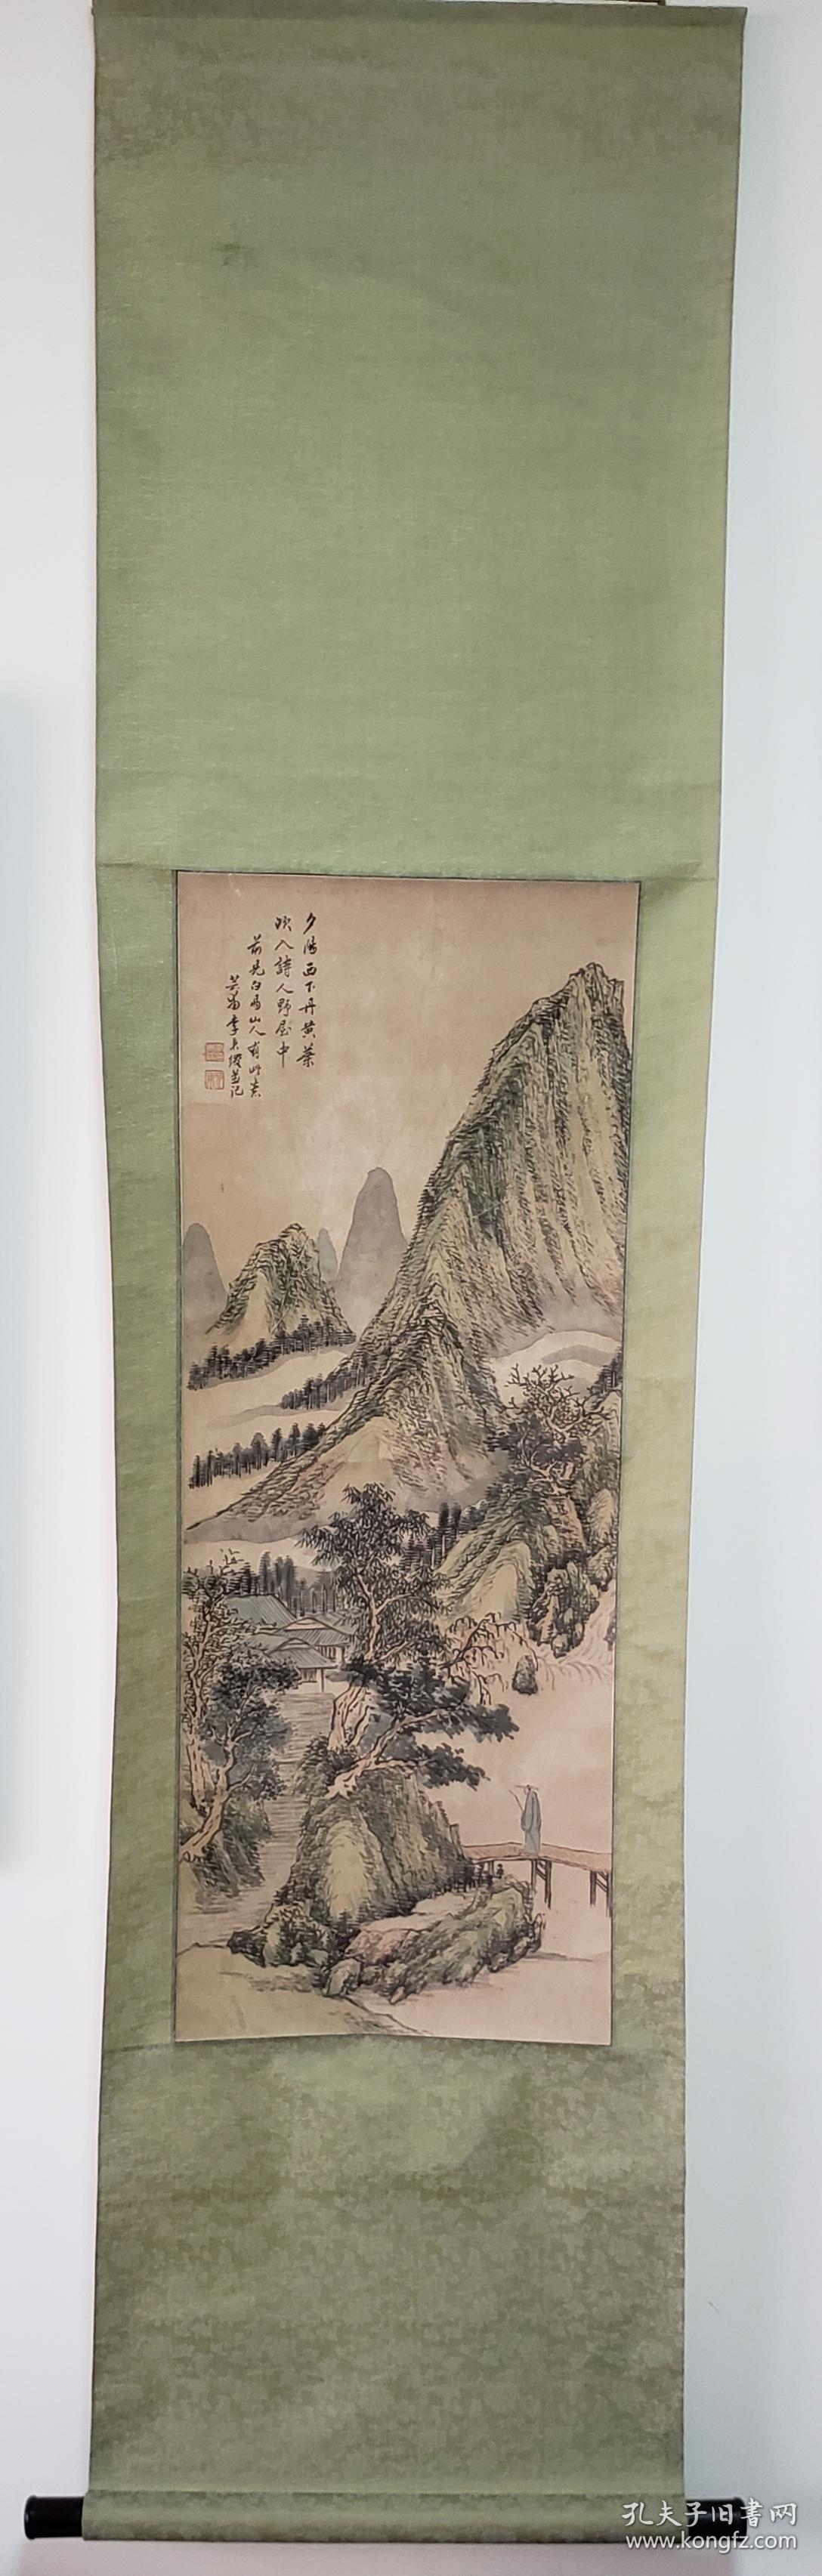 夕陽西下丹黄葉
吹入詩人野屋中
前見白马山人有此意
芸
李
並记
孔夫子旧书网
www.kongfz.com